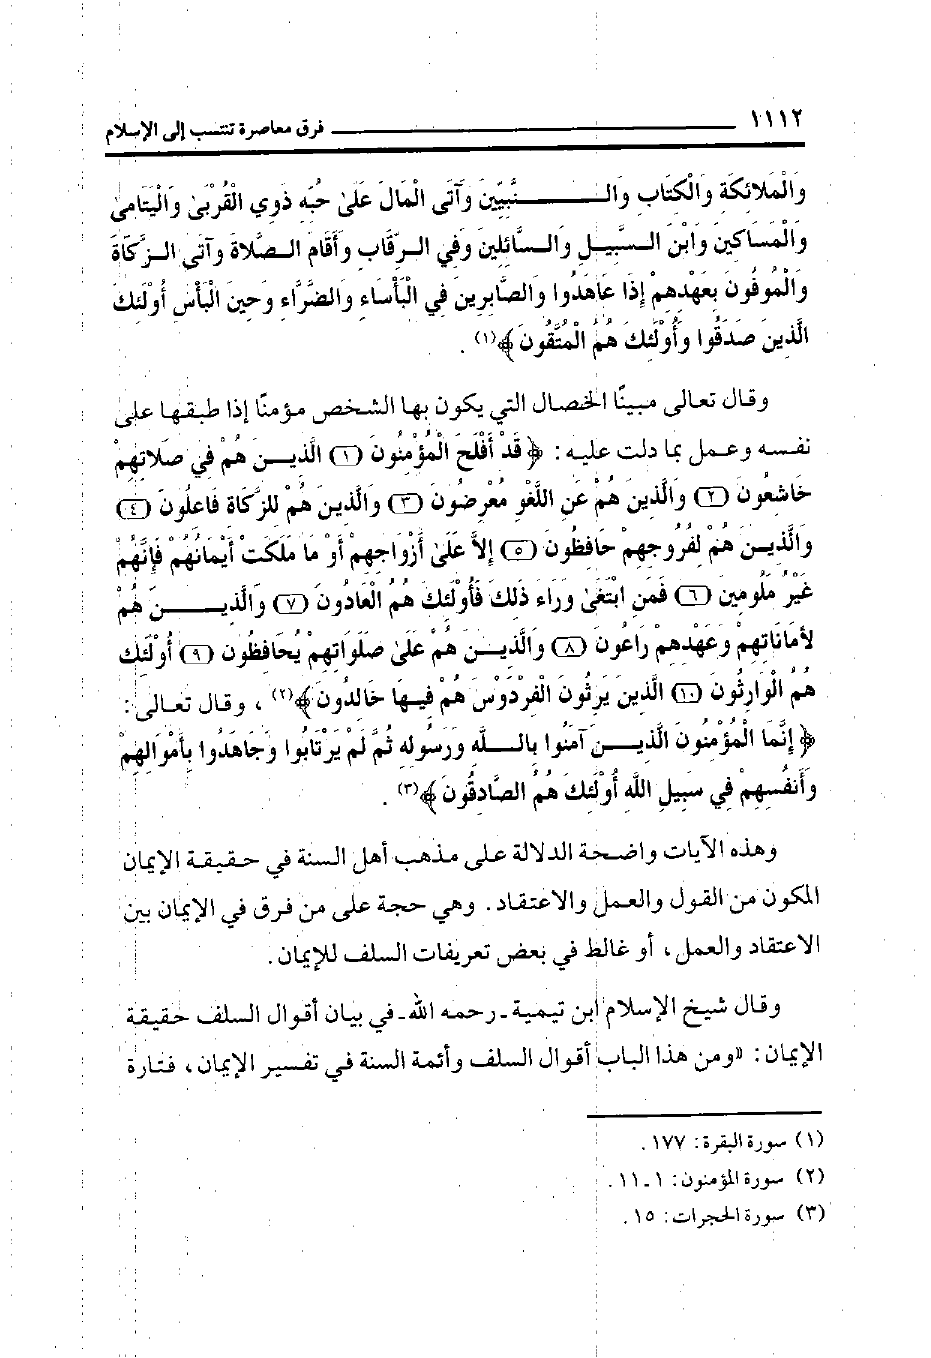 ١١١٢ فرق معاصرة تنتسب إلى الإسلام
وَالْمَلائِكَةِ وَالْكِتَابِ وَالنَّبِيِّينَ وَآتَى الْمَالَ عَلَىٰ حُبِّهِ ذَوِي الْقُرْبَىٰ وَالْيَتَامَىٰ
وَالْمَسَاكِينَ وَابْنَ السَّبِيلِ وَالسَّائِلِينَ وَفِي الرِّقَابِ وَأَقَامَ الصَّلاةَ وَآتَى الزَّكَاةَ
وَالْمُوفُونَ بِعَهْدِهِمْ إِذَا عَاهَدُوا وَالصَّابِرِينَ فِي الْبَأْسَاءِ وَالضَّرَّاءِ وَحِينَ الْبَأْسِ أُوْلَئِكَ
الَّذِينَ صَدَقُوا وَأُوْلَئِكَ هُمُ الْمُتَّقُونَ﴾(١) .
وقال تعالى مبينًا الخصال التي يكون بها الشخص مؤمنًا إذا طبقها على
نفسه وعمل بما دلت عليه: ﴿ قَدْ أَفْلَحَ الْمُؤْمِنُونَ (١) الَّذِينَ هُمْ فِي صَلاتِهِمْ
خَاشِعُونَ (٢) وَالَّذِينَ هُمْ عَنِ اللَّغْوِ مُعْرِضُونَ (٣) وَالَّذِينَ هُمْ لِلزَّكَاةِ فَاعِلُونَ (٤)
وَالَّذِينَ هُمْ لِفُرُوجِهِمْ حَافِظُونَ (٥) إِلاَّ عَلَىٰ أَزْوَاجِهِمْ أَوْ مَا مَلَكَتْ أَيْمَانُهُمْ فَإِنَّهُمْ
غَيْرُ مَلُومِينَ (٦) فَمَنِ ابْتَغَىٰ وَرَاءَ ذَلِكَ فَأُوْلَئِكَ هُمُ الْعَادُونَ (٧) وَالَّذِينَ هُمْ
لأَمَانَاتِهِمْ وَعَهْدِهِمْ رَاعُونَ (٨) وَالَّذِينَ هُمْ عَلَىٰ صَلَوَاتِهِمْ يُحَافِظُونَ (٩) أُوْلَئِكَ
هُمُ الْوَارِثُونَ (١٠) الَّذِينَ يَرِثُونَ الْفِرْدَوْسَ هُمْ فِيهَا خَالِدُونَ﴾(٢) ، وقال تعالى:
﴿ إِنَّمَا الْمُؤْمِنُونَ الَّذِينَ آمَنُوا بِاللَّهِ وَرَسُولِهِ ثُمَّ لَمْ يَرْتَابُوا وَجَاهَدُوا بِأَمْوَالِهِمْ
وَأَنفُسِهِمْ فِي سَبِيلِ اللَّهِ أُوْلَئِكَ هُمُ الصَّادِقُونَ﴾(٣) .
وهذه الآيات واضحة الدلالة على مذهب أهل السنة في حقيقة الإيمان
المكون من القول والعمل والاعتقاد. وهي حجة على من فرق في الإيمان بين
الاعتقاد والعمل، أو غالط في بعض تعريفات السلف للإيمان.
وقال شيخ الإسلام ابن تيمية ـ رحمه الله ـ في بيان أقوال السلف حقيقة
الإيمان: «ومن هذا الباب أقوال السلف وأئمة السنة في تفسير الإيمان، فتارة
(١) سورة البقرة: ١٧٧ .
(٢) سورة المؤمنون: ١ ـ ١١ .
(٣) سورة الحجرات: ١٥ .